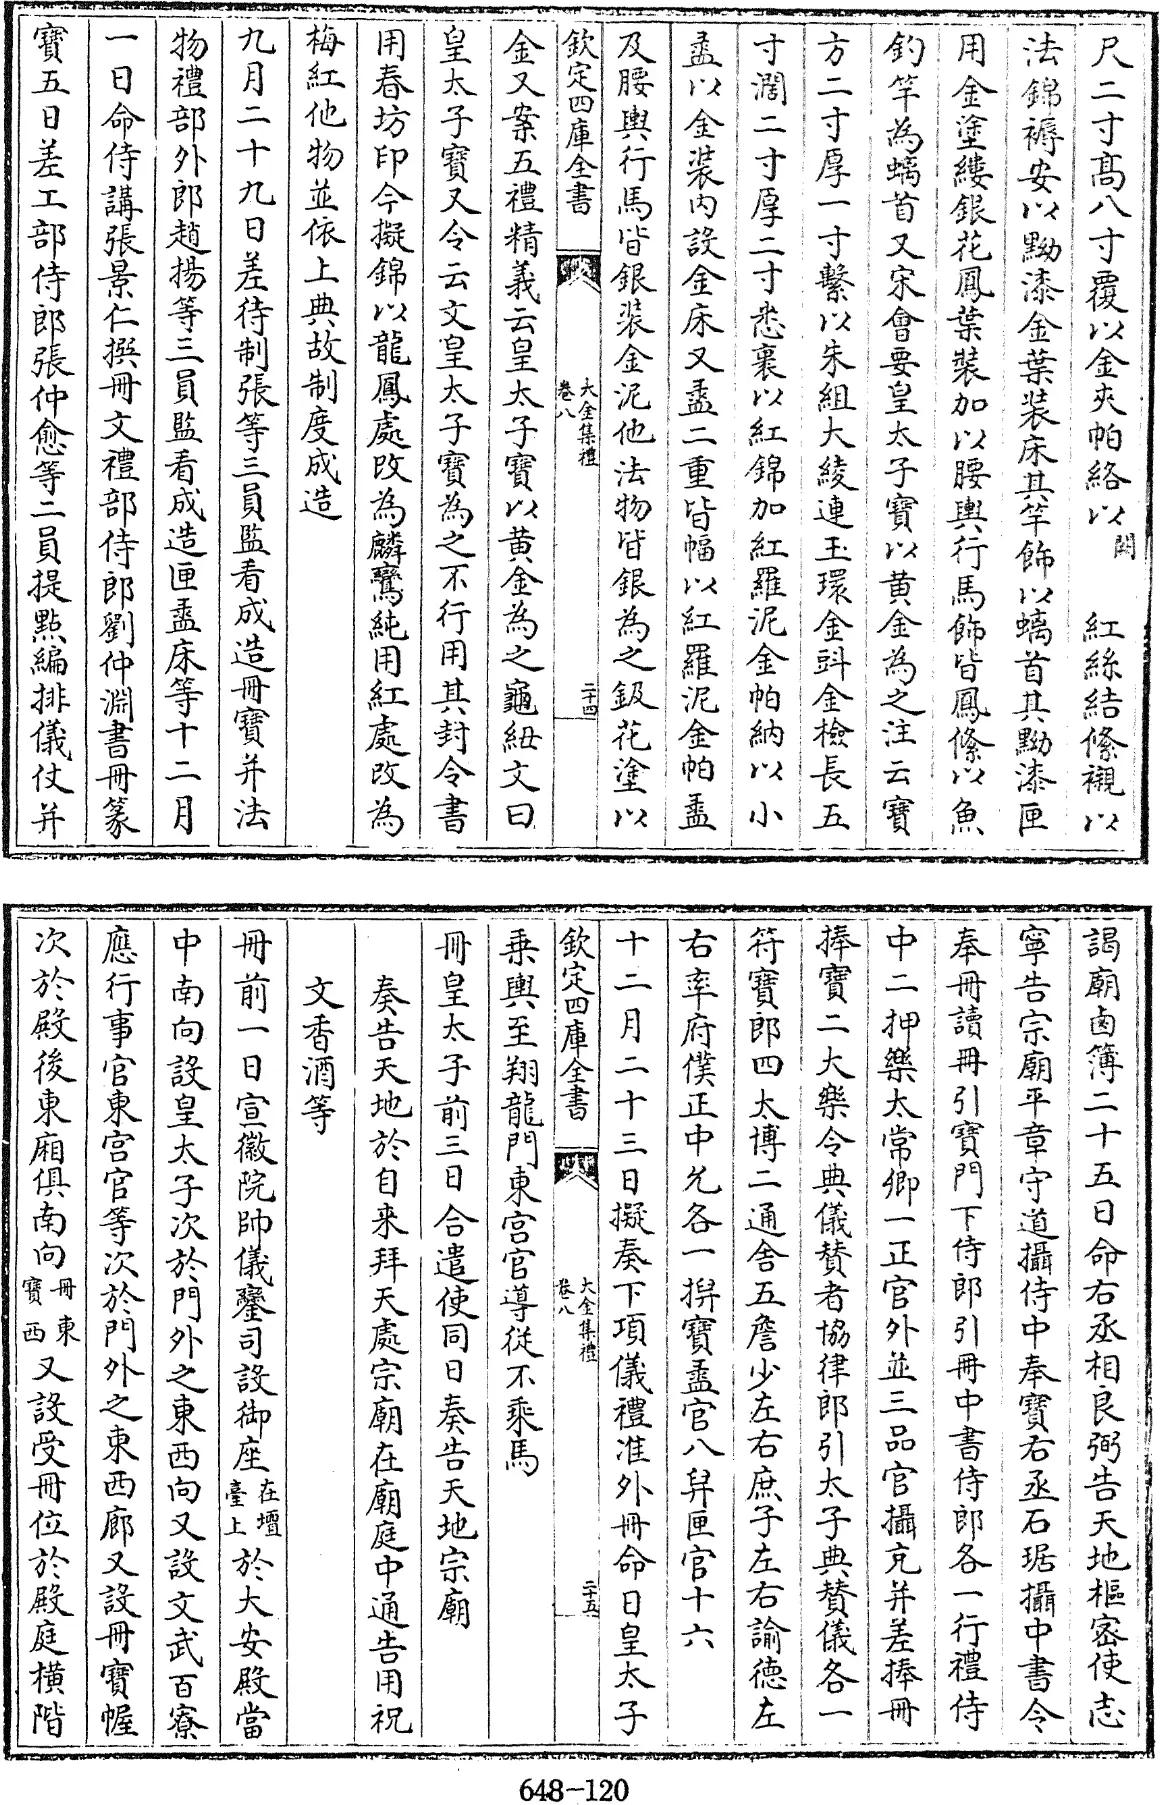 尺二寸髙八寸覆以金夾帕絡以闕紅絲結絛襯以
法錦褥安以黝漆金葉装床其竿飾以螭首其黝漆匣
用金塗縷銀花鳳葉裝加以腰輿行馬飾皆鳳絛以魚
釣竿為螭首又宋會要皇太子寳以黄金為之注云寳
方二寸厚一寸繫以朱組大綬連玉環金㪷金檢長五
寸濶二寸厚二寸悉裹以紅錦加紅羅泥金帕納以小
盝以金装内設金床又盝二重皆幅以紅羅泥金帕盝
及腰輿行馬皆銀装金泥他法物皆銀為之鈒花塗以
欽定四庫全書
大金集禮
卷八
二十四
金又案五禮精義云皇太子寳以黄金為之龜紐文曰
皇太子寳又令云文皇太子寳為之不行用其封令書
用春坊印今擬錦以龍鳳處改為麟鸞純用紅處改為
梅紅他物並依上典故制度成造
九月二十九日差待制張等三員監看成造冊寳并法
物禮部外郎趙揚等三員監看成造匣盝床等十二月
一日命侍講張景仁撰冊文禮部侍郎劉仲淵書冊篆
寳五日差工部侍郎張仲愈等二員提點編排儀仗并
謁廟鹵簿二十五日命右丞相良弼告天地樞密使志
寧告宗廟平章守道攝侍中奉寳右丞石琚攝中書令
奉冊讀冊引寳門下侍郎引冊中書侍郎各一行禮侍
中二押樂太常卿一正官外並三品官攝充并差捧冊
捧寳二大樂令典儀賛者協律郎引太子典賛儀各一
符寳郎四太博二通舍五詹少左右庶子左右諭徳左
右率府僕正中允各一捹寳盝官八舁匣官十六
十二月二十三日擬奏下項儀禮准外冊命日皇太子
欽定四庫全書
大金集禮
卷八
二十五
乗輿至翔龍門東宫官導從不乘馬
冊皇太子前三日合遣使同日奏告天地宗廟
奏告天地於自来拜天處宗廟在廟庭中通告用祝
文香酒等
冊前一日宣徽院帥儀鑾司設御座在壇臺上於大安殿當
中南向設皇太子次於門外之東西向又設文武百寮
應行事官東宫官等次於門外之東西廊又設冊寳幄
次於殿後東廂俱南向冊東寳西又設受冊位於殿庭横階
648-120